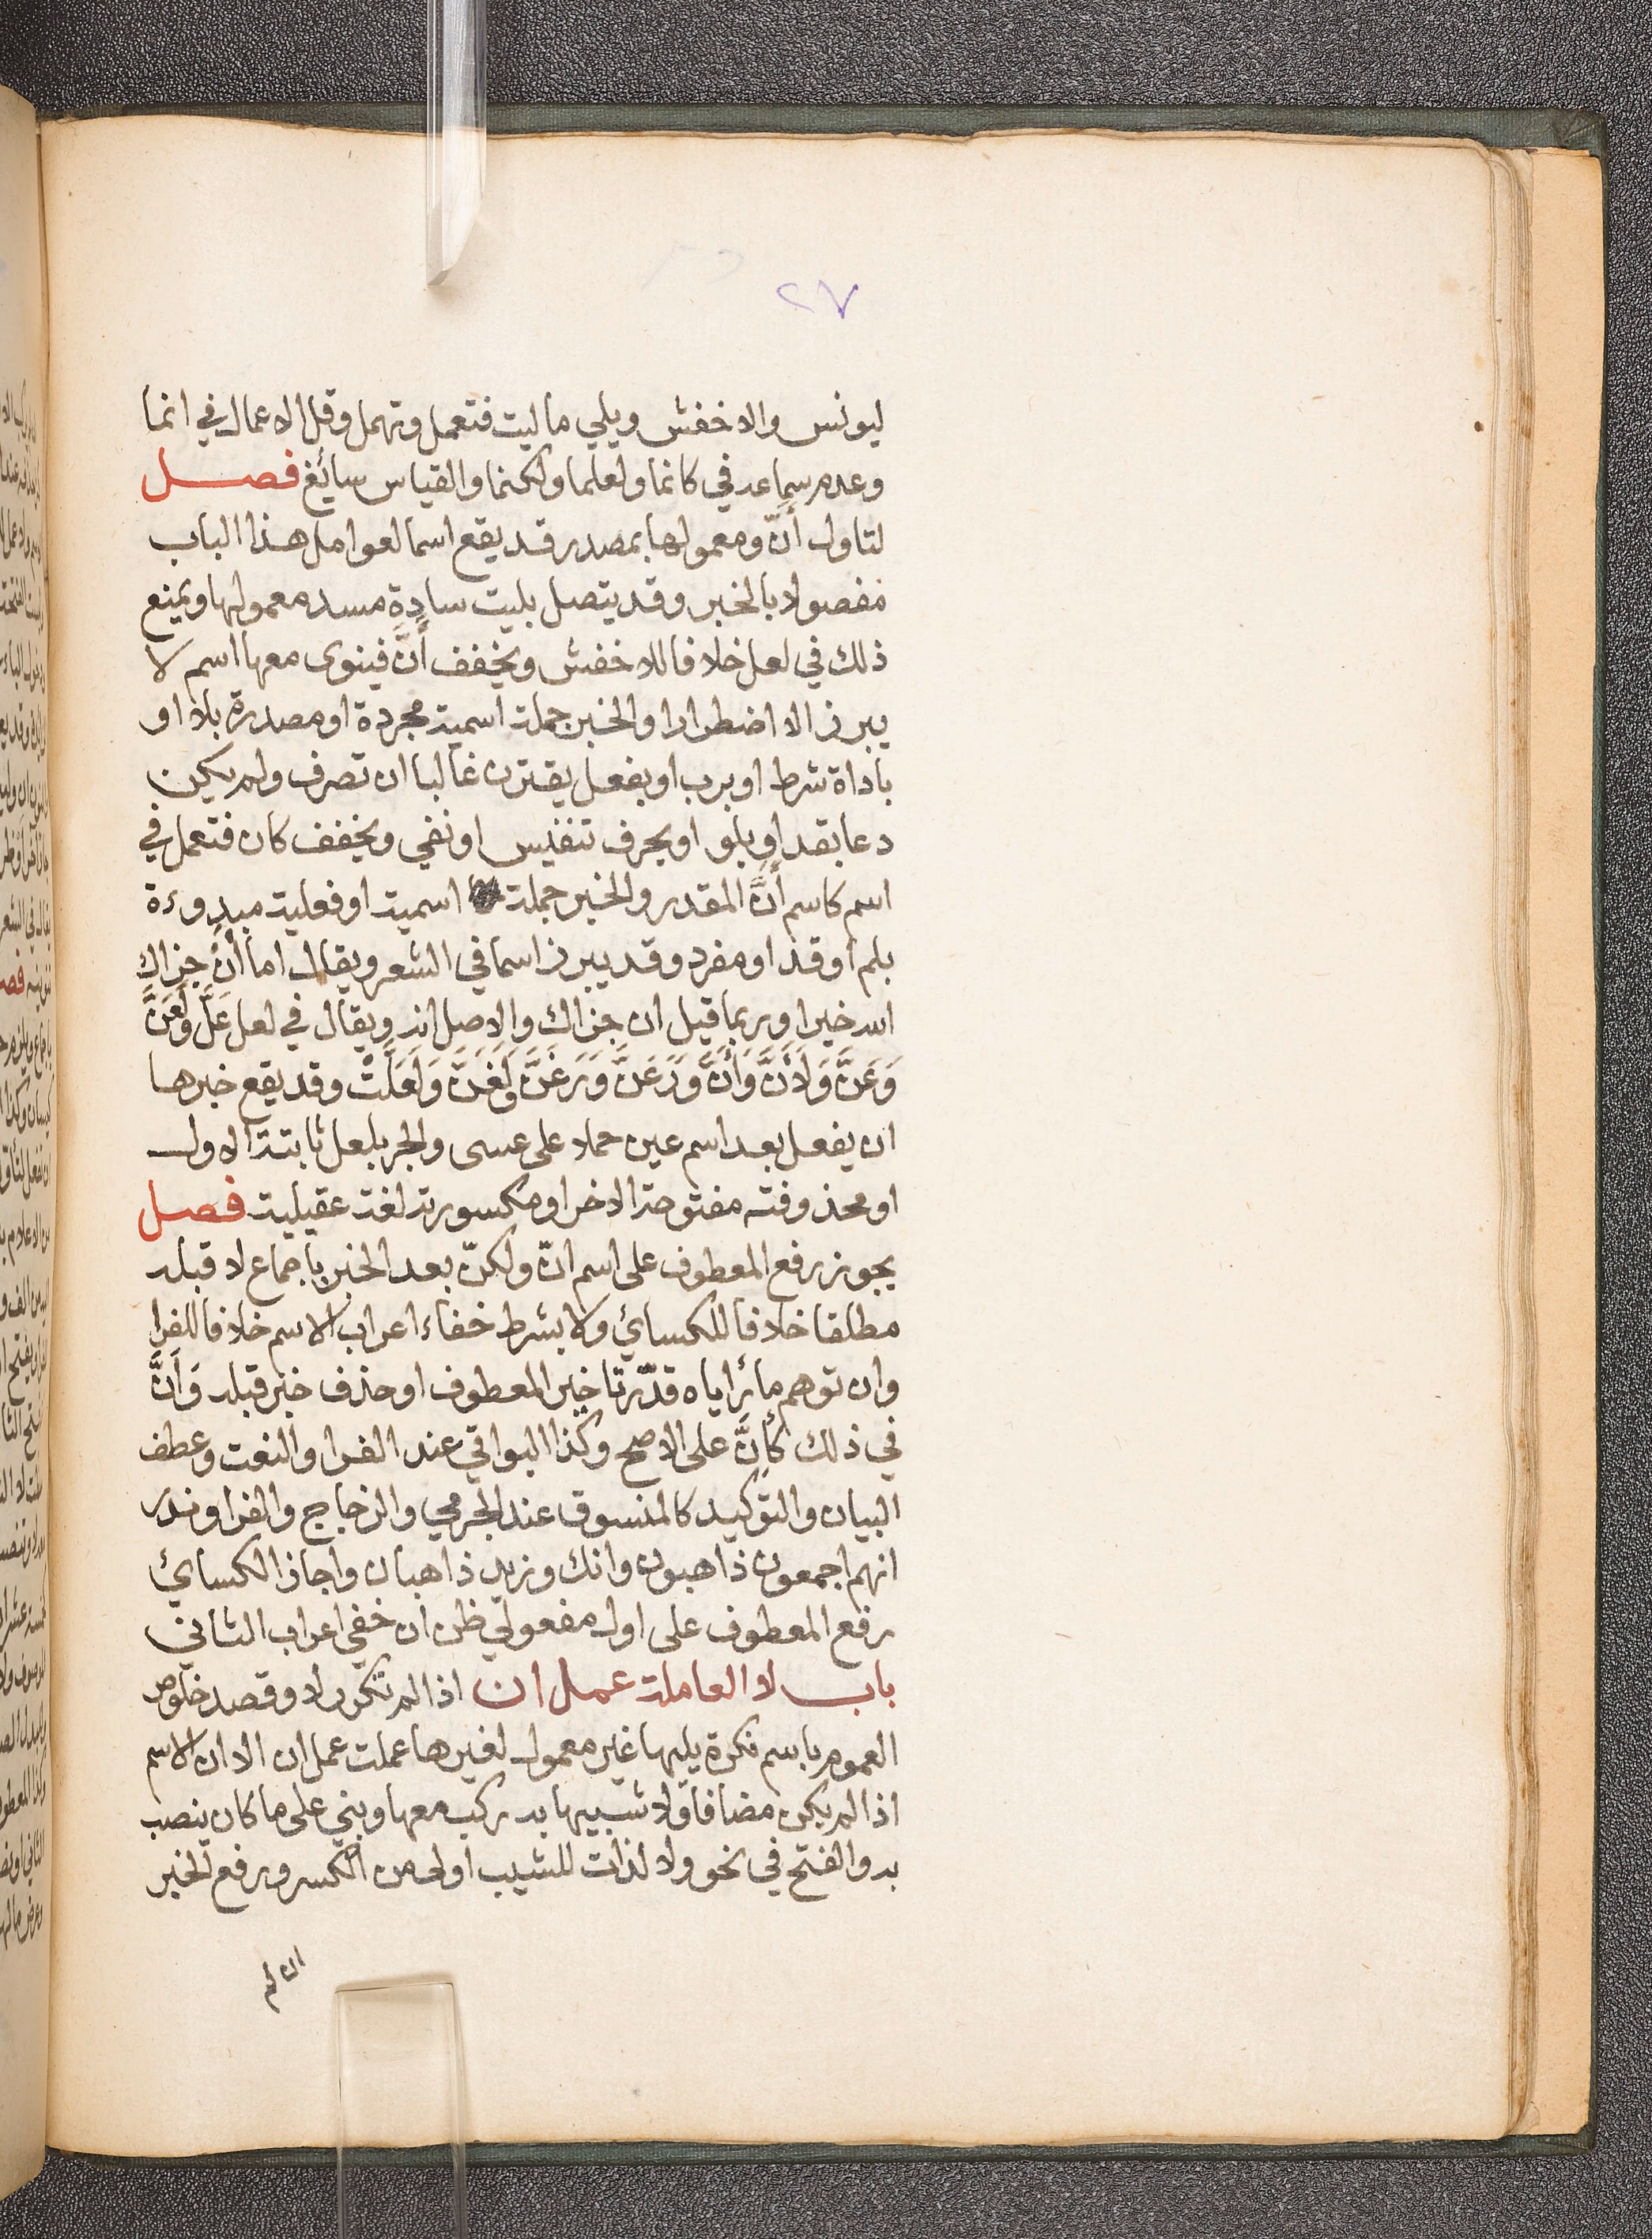 ٢٧
ليونس والاخفش ويلي ما ليت فتعمل وتهمل وقل الاعمال في انما
وعدم سماعه في كانما ولعلما ولكنما والقياس سائغ فصل
لتاول أنّ ومعمولها بمصدر قد يقع اسما لعوامل هذا الباب
مفصولا بالخبر وقد يتصل بليت سادة مسد معموليها ويمنع
ذلك في لعل خلافا للاخفش ويخفف أنَّ فينوى معها اسم لا
يبرز الا اضطرارا والخبر جملة اسمية مجردة او مصدرة بلا او
باداة شرط او برب او بفعل يقترن غالبا ان تصرف ولم يكن
دعا بقد او بلو او بحرف تنفيس او نفي ويخفف كان فتعمل في
اسم كاسم أنَّ المقدر والخبر جملة اسمية او فعلية مبدوءة
بلم او قد او مفرد وقد يبرز اسما في الشعر ويقال اما أنْ جزاك
الله خيرا وربما قيل ان جزاك والاصل انه ويقال في لعل عَلَّ ولَعَنَّ
وَعَنَّ وَلَأَنَّ وَأَنَّ وَرَعَنَّ وَرَغَنَّ وَلَغَنَّ وَلَعَلَّتْ وقد يقع خبرها
ان يفعل بعد اسم عين حملا على عسى والجر بلعل ثابتة الاول
او محذوفته مفتوحة الاخر او مكسورته لغة عقيلية فصل
يجوز رفع المعطوف على اسم انّ ولكنّ بعد الخبر باجماع لا قبله
مطلقا خلافا للكسائي ولا بشرط خفاء اعراب الاسم خلافا للفرا
وان توهم ما رأياه قدّر تاخير المعطوف او حذف خبر قبله وَأَنَّ
في ذلك كأنَّ على الاصح وكذا البواقي عند الفرا والنعت وعطف
البيان والتوكيد كالمنسوق عند الجرمي والزجاج والفرا وندر
انهم اجمعون ذاهبون وانك وزيد ذاهبان واجاز الكسائي
رفع المعطوف على اول مفعولي ظن ان خفي اعراب الثاني
باب لا العاملة عمل ان اذا لم تكرر لا وقصد خلوص
العموم باسم نكرة يليها غير معمول لغيرها عملت عمل ان الا ان الاسم
اذا لم يكن مضافا ولا شبيها به ركب معها وبني على ما كان ينصب
به والفتح في نحو ولا لذات للشيب اولى من الكسر ورفع الخبر
ان لم